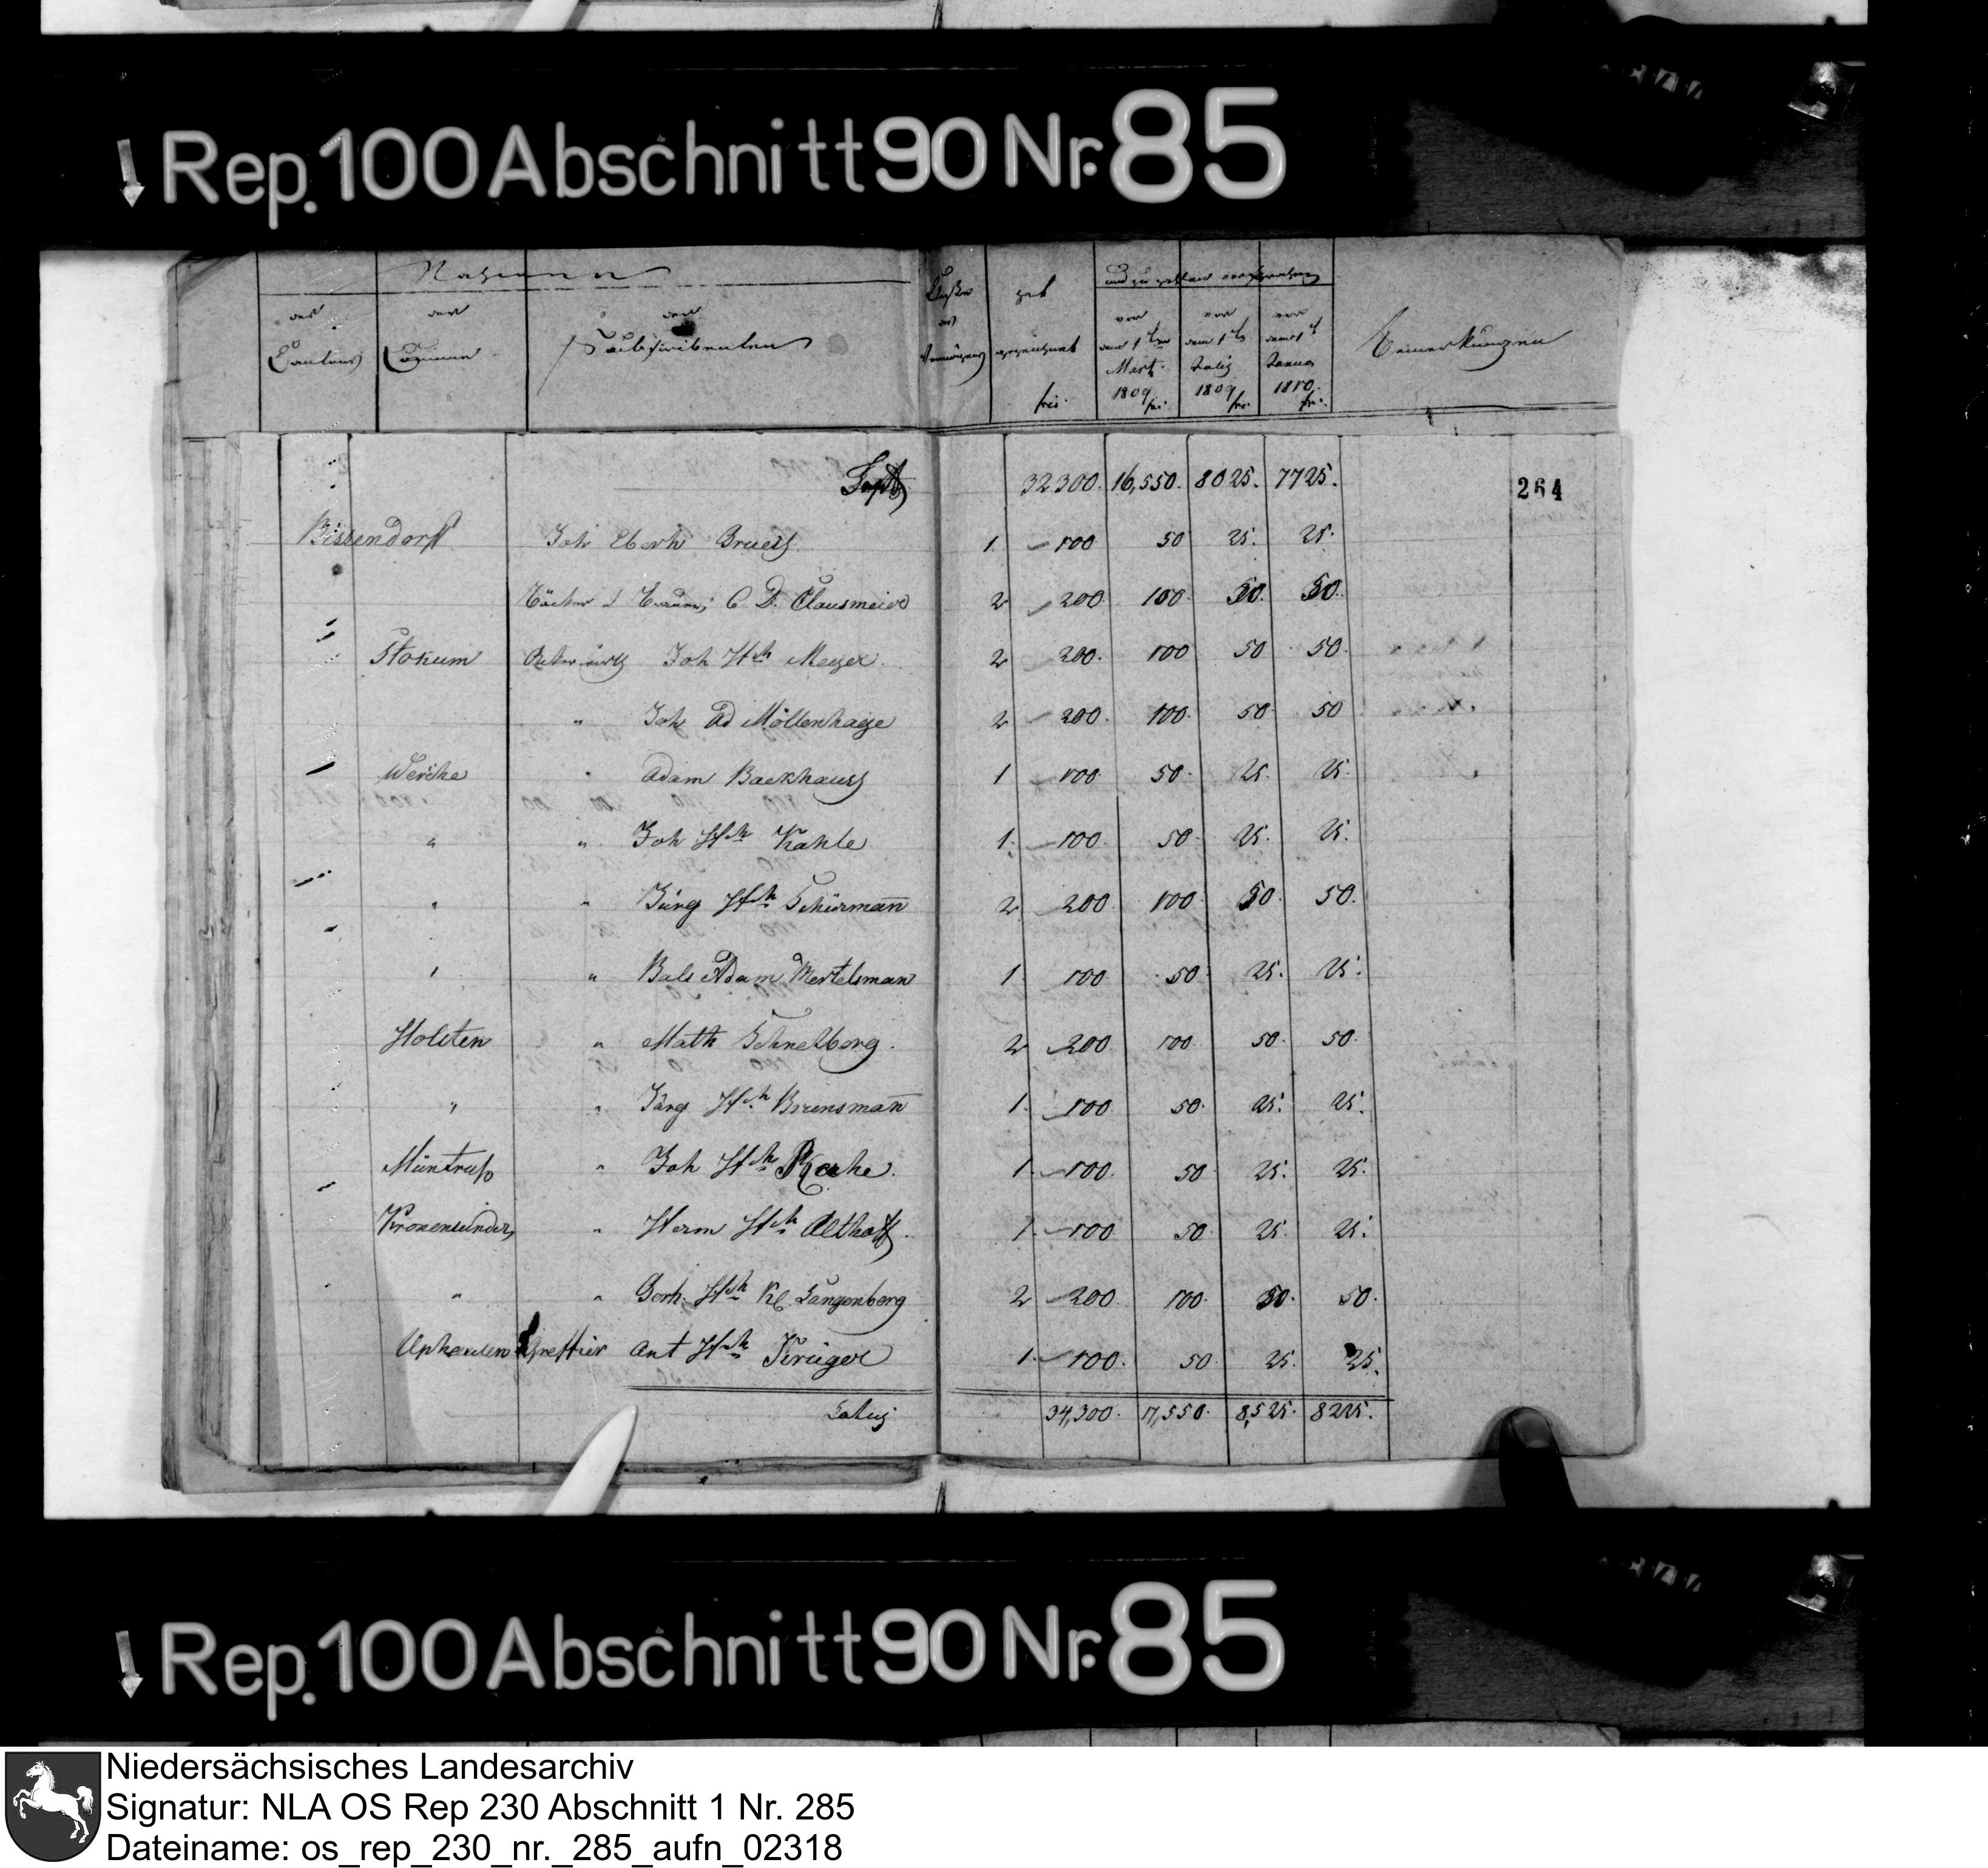 Rep. 100 Abschnitt 90 Nr. 85
Nahmen
des Cantons
der Commune
der Subscribenten
hat gezeichnet frcs.
und zu zahlen versprochen
vor dem 1ten Martz 1809 frc.
vor dem 1ten July 1809 frc.
vor dem 1t Januar 1810. frc.
Bemerkungen
32300. 16,550. 8025. 7725.
264
Bissendorf Joh Eberh 1. 100 50 25. 25.
C D. Clausmeier 2 200 100. 50. 50.
Stokum Joh Hch Meyer. 2 200. 100 50 50.
" Joh Ad Möllenhage 2 200. 100. 50 50
Weriche " Adam Backhaus 1 100. 50. 25. 25.
" " Joh Hch Kahle 1. 100. 50. 25. 25.
" " Jürg Hch Schürman̄ 2 200 100. 50. 50.
" " Bals Adam Mertelsman 1. 100 50. 25. 25.
Holsten " Math Schnelberg. 2 200 100. 50. 50.
" " Jürg Hch Brunsman̄ 1. 100 50. 25. 25.
" Joh Hch 1. 100. 50 25. 25.
" Herm Hch Althoff. 1. 100 50. 25. 25.
" " Gerh. Hch Kl. Langenberg 2 200. 100. 50. 50.
Uphausen Greffier Ant Hch Krüger 1. 100. 50. 25. 25.
Latus 34,300. 17,550. 8,525. 8225.
Rep. 100 Abschnitt 90 Nr. 85
Niedersächsisches Landesarchiv
Signatur: NLA OS Rep 230 Abschnitt 1 Nr. 285
Dateiname: os_rep_230_nr._285_aufn_02318